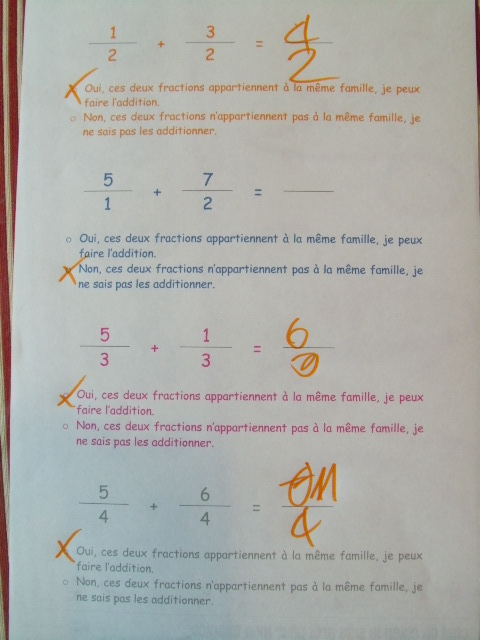 1/2 + 3/2 = 4/2
Oui, ces deux fractions appartiennent à la même famille, je peux
faire l'addition.
Non, ces deux fractions n'appartiennent pas à la même famille, je
ne sais pas les additionner.
5/1 + 7/2 =
Oui, ces deux fractions appartiennent à la même famille, je peux
faire l'addition.
Non, ces deux fractions n'appartiennent pas à la même famille, je
ne sais pas les additionner.
5/3 + 1/3 = 6/
Oui, ces deux fractions appartiennent à la même famille, je peux
faire l'addition.
Non, ces deux fractions n'appartiennent pas à la même famille, je
ne sais pas les additionner.
5/4 + 6/4 = 11/4
Oui, ces deux fractions appartiennent à la même famille, je peux
faire l'addition.
Non, ces deux fractions n'appartiennent pas à la même famille, je
ne sais pas les additionner.